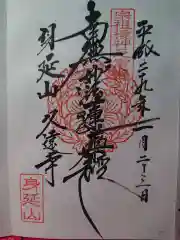 平成二十九年一月二十三日
南無妙法蓮華経
身延山 久遠寺
身延山